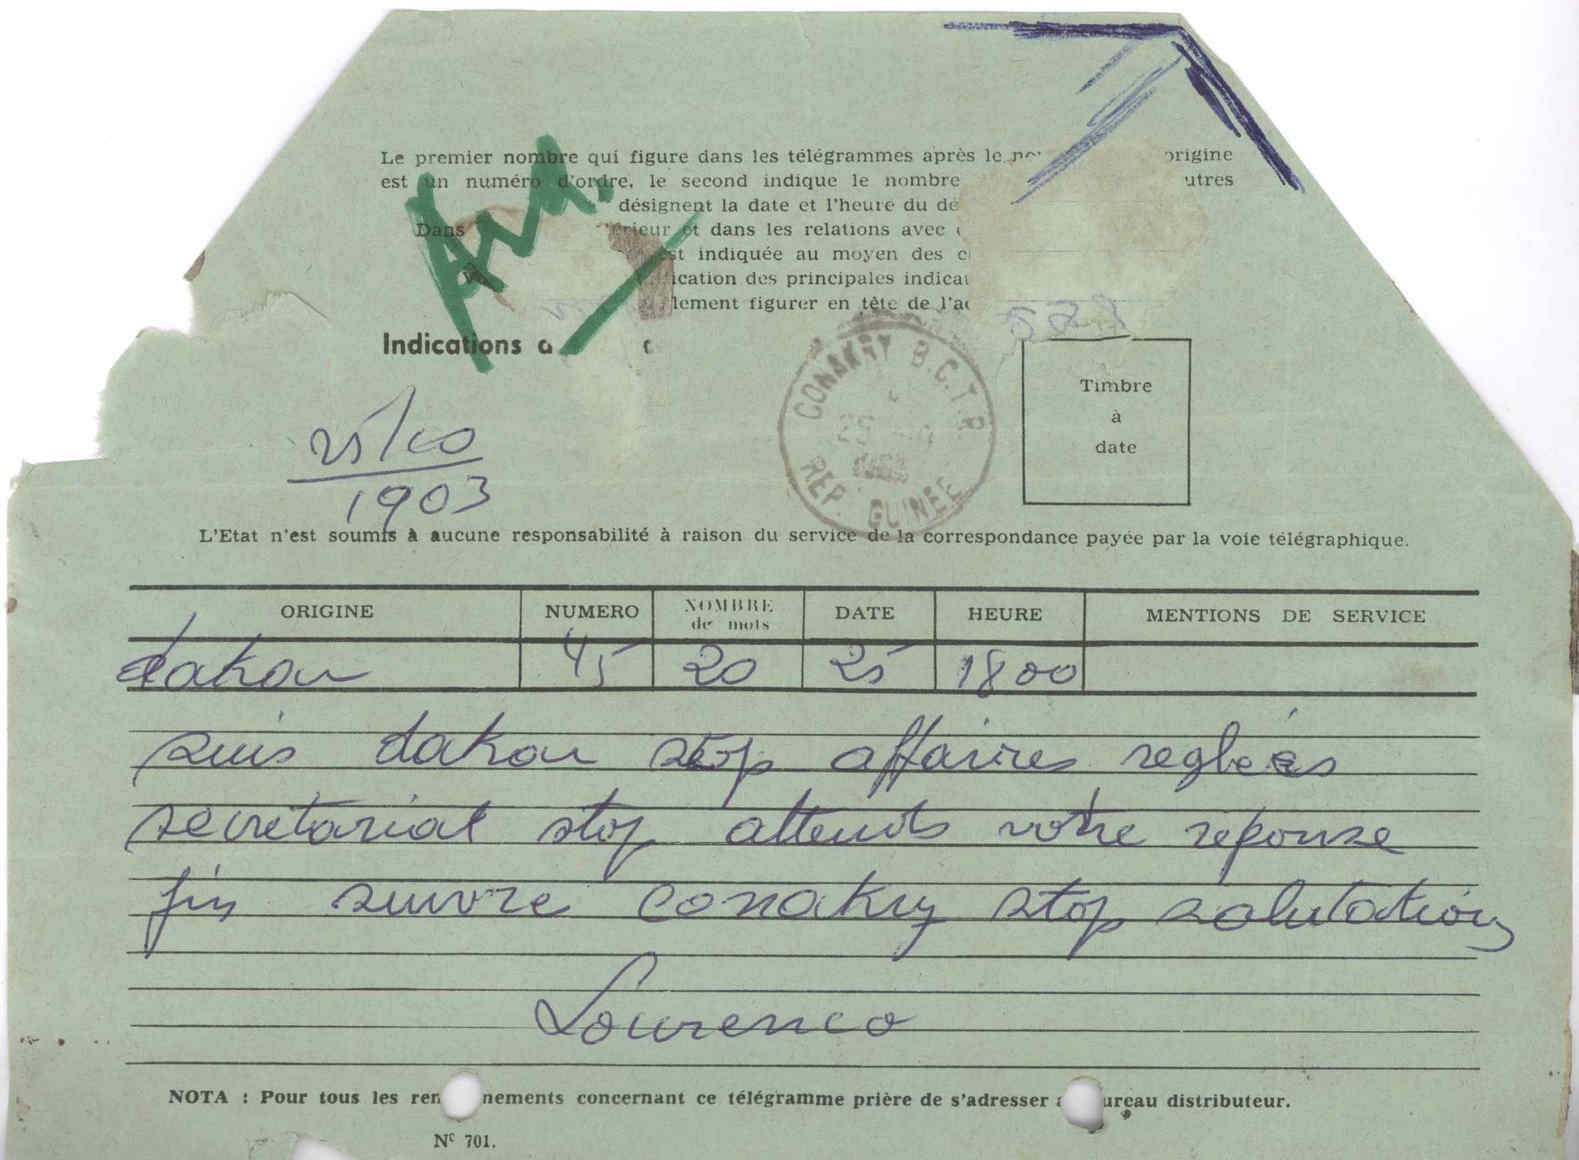 Le premier nombre qui figure dans les télégrammes après le origine
est un numéro d'ordre, le second indique le nombre
désignent la date et l'heure du
Dans et dans les relations avec
indiquée au moyen des
des principales
figurer en tête de
Indications
25/10
1903
CONAKRY B.C.T.R.
REP. GUINEE
Timbre
à
date
L'Etat n'est soumis à aucune responsabilité à raison du service de la correspondance payée par la voie télégraphique.
ORIGINE NUMERO NOMBRE de mots DATE HEURE MENTIONS DE SERVICE
dakar 45 20 25 1800
suis dakar stop affaires reglées
secretariat stop attends votre reponse
fin suivre conakry stop salutations
Lourenco
NOTA : Pour tous les concernant ce télégramme prière de s'adresser distributeur.
N° 701.